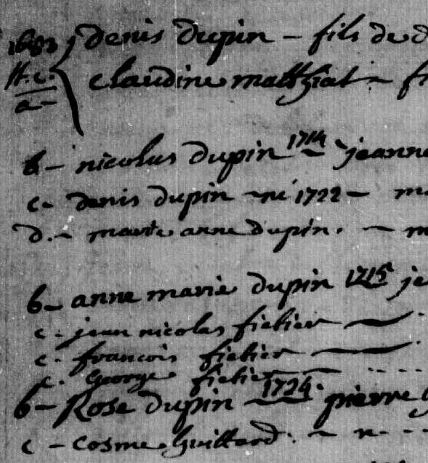 1683 denis dupin - fils de d
H.C. claudine mathiat - fr
a-
b - nicolas dupin 1714 jeanne
c - denis dupin - né 1722 - m
d. - marie anne dupin. - m
b - anne marie dupin 1715 je
c - jean nicolas fiebier
c - francois fiebier
c. George fiebier
b - Rose dupin - 1724. pierre
c - cosme Guillard. - n